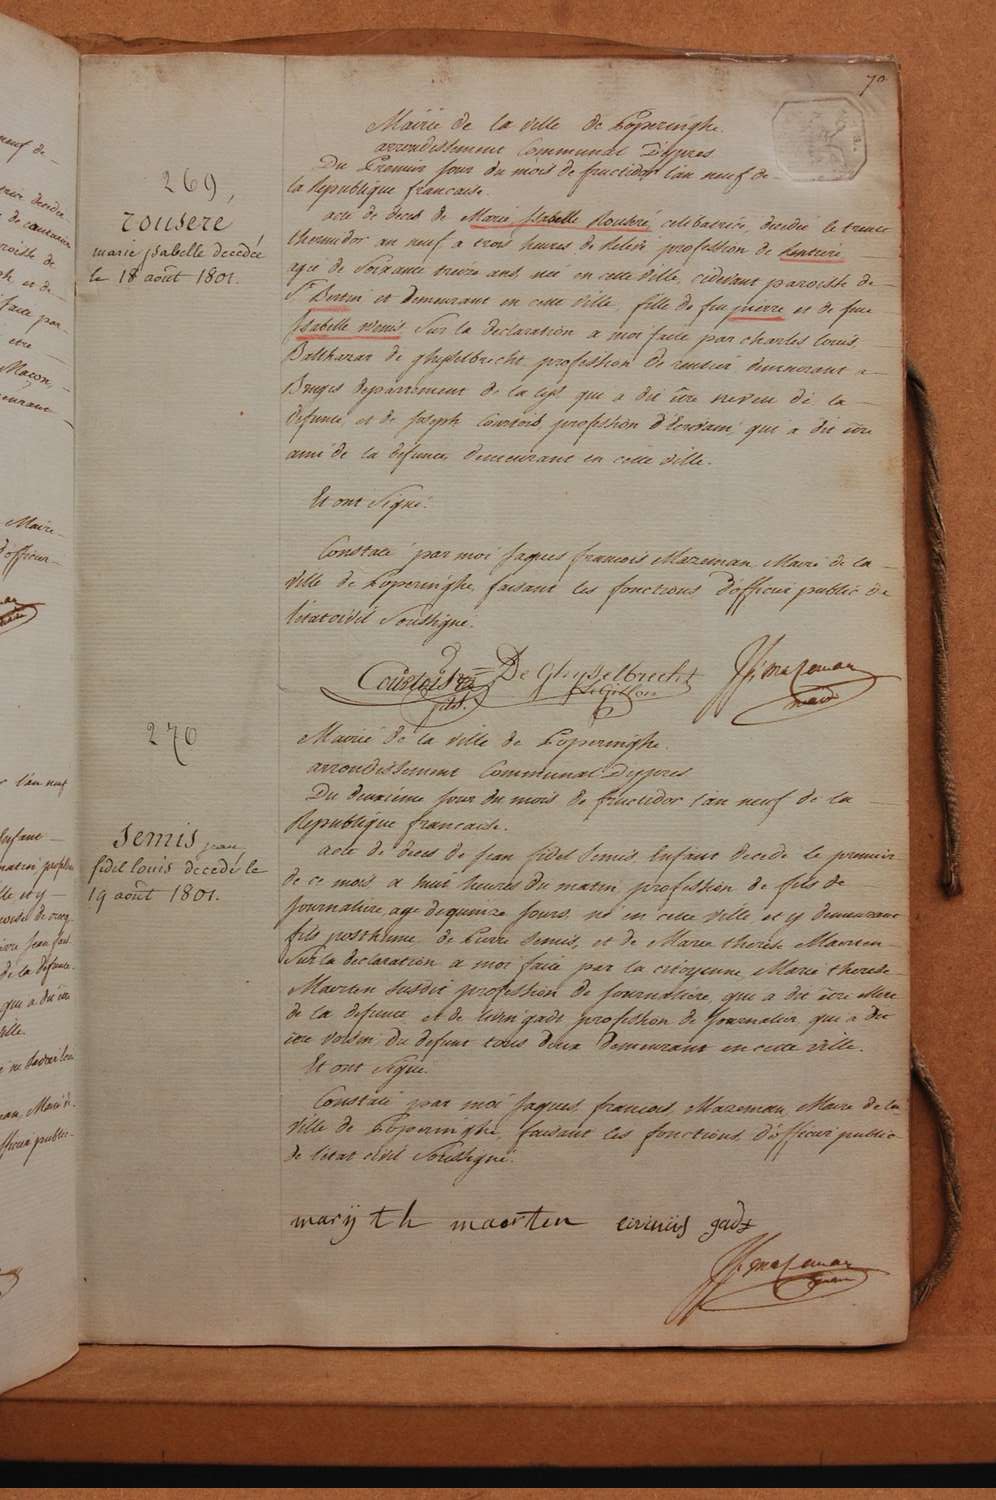 70
Mairie de la ville de Poperinghe.
arrondissement Communal D'ypres
Du Premier jour du mois de fructidor l'an neuf de
la Republique francaise.
269,
rousere,
marie jsabelle decedée
le 18 août 1801.
acte de deces de Marie Jsabelle Rouseré, celibatrice, decedée le trente
thermidor an neuf a trois heures de relevé profession de Rentiere
agée de Soixante treize ans, née en cette ville, cidevant paroisse de
St Bertin et demeurant en cette ville, fille de feu pierre et de feue
Jsabelle Denis, Sur la declaration a moi faite par charles Louis
Balthazar de ghyselbrecht profession de rentier demeurant a
Bruges departement de la Lys qui a dit être neveu de la
defunte, et de Joseph Courtois, profession d'Ecrivain qui a dit être
ami de la defunte, demeurant en cette ville.
Et ont Signé.
Constaté par moi Jaques francois Mazeman, Maire de la
ville de Poperinghe, faisant les fonctions d'officier public de
l'etat civil Soussigné.
Courtois
fils.
De Ghyselbrecht
JF: Mazeman
maire
270
Mairie de la ville de Poperinghe.
arrondissement Communal D'ypres
Du deuxième jour du mois de fructidor l'an neuf de la
Republique francaise.
Semis, jean
fidel louis decedé le
19 août 1801.
acte de deces de Jean fidel Semis, Enfant decedé le premier
de ce mois, a huit heures du matin profession de fils de
journaliere, age de quinze jours, né en cette ville, et y demeurant
fils posthume, de Pierre Semis, et de Marie therese Maerten
Sur la declaration a moi faite par la citoyenne, Marie therese
Maerten susdit profession de Journaliere, qui a dit être Mere
de la defunte et de gads profession de Journalier, qui a dit
être voisin du defunt tous deux demeurant en cette ville.
Et ont Signé.
Constaté par moi Jaques francois, Mazeman, Maire de la
ville de Poperinghe, faisant les fonctions d'officier public
de l'etat civil Soussigné.
marij th maerten gads
JF: Mazeman
maire